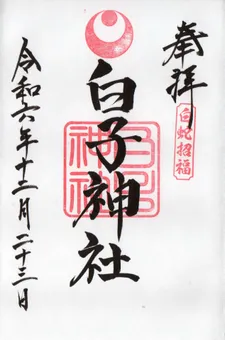 奉拝
白蛇招福
白子神社
令和六年十二月二十三日